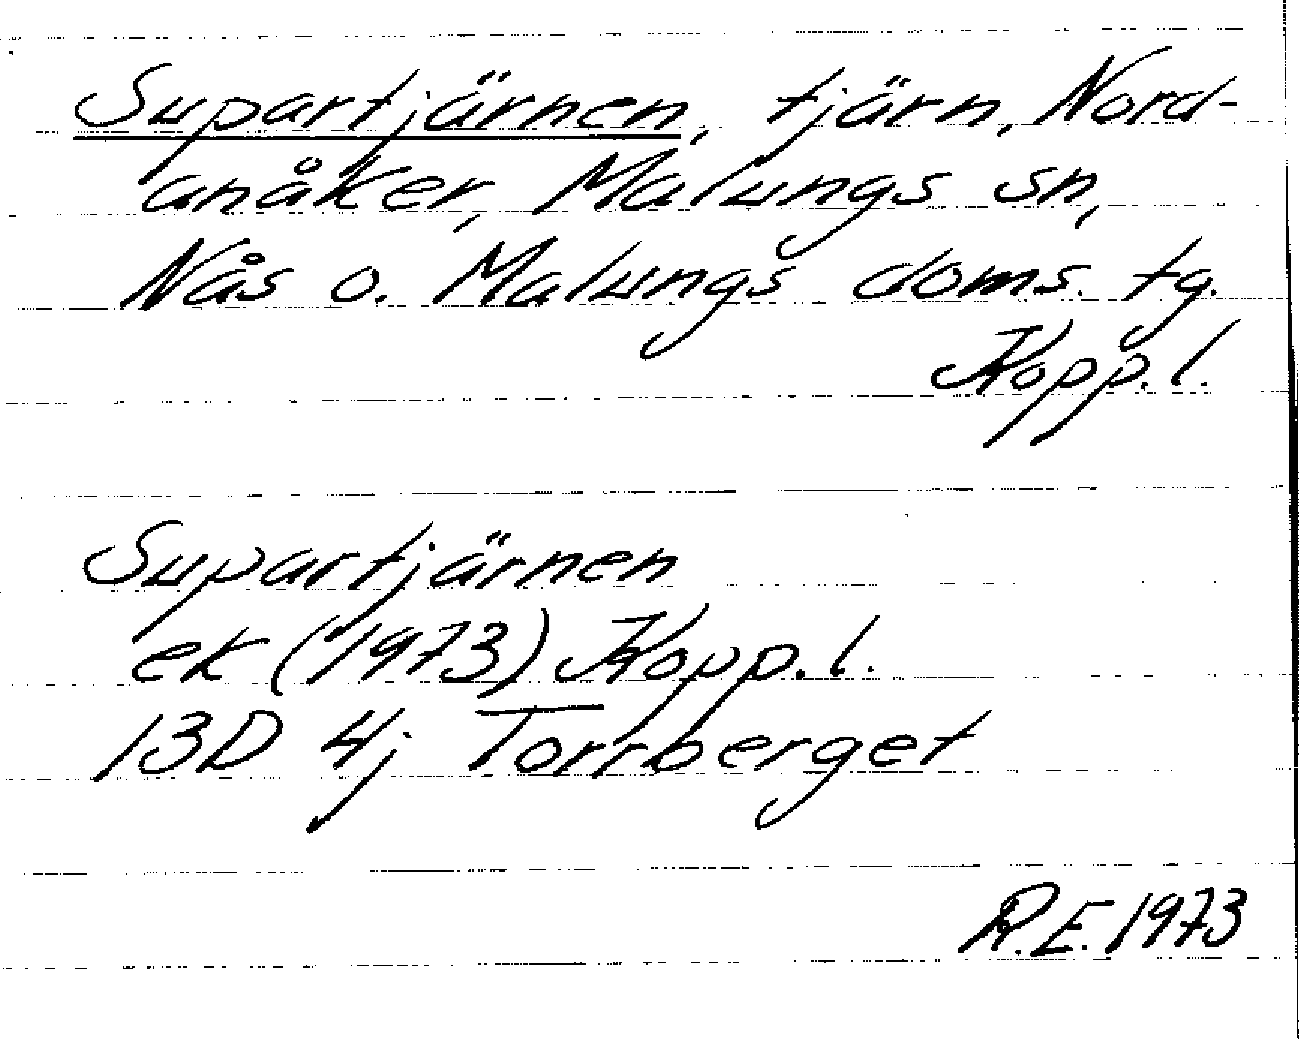 Supartjärnen, tjärn, Nord-
anåker, Malungs sn,
Nås o. Malungs doms. tg.
Kopp. l.
Supartjärnen
ek (1973) Kopp. l.
13D 4j Torrberget
R.E. 1973